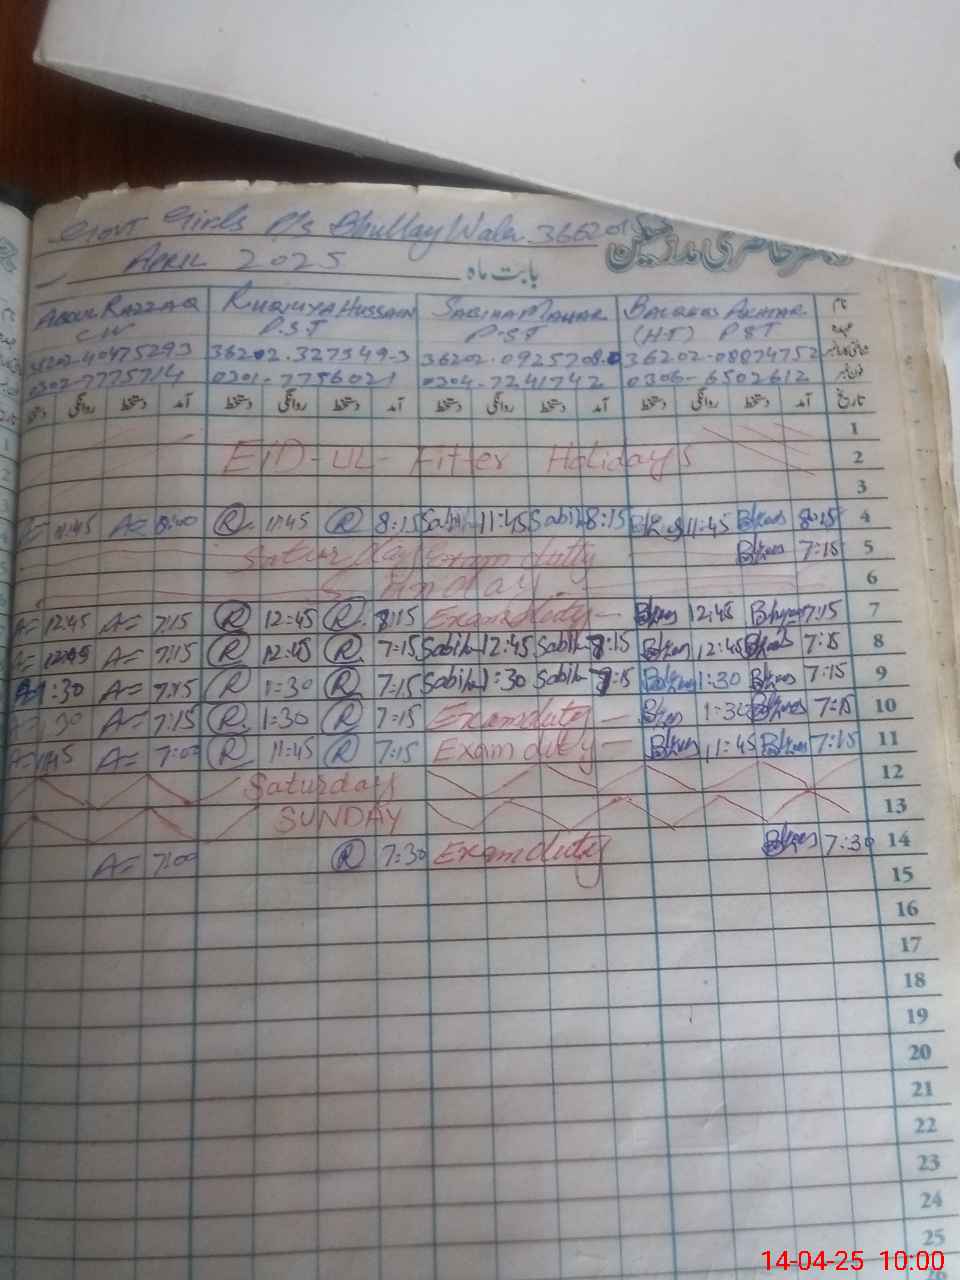 Govt Girls P/s Bhullay Wala 36620
رجسٹر حاضری مدرسین
April 2025 بابت ماہ
Abdul Razzaq Ruqiuya Hussain Sabiha Mahar Balques Akhtar نام
P.S.T P.S.T (HT) PST عہدہ
36202-40475293 36202.327549-3 36202.0925708.0 36202-08874752
0302-7775714 0201.7756021 0204-7241742 0306-6502612
دستخط روانگی دستخط آمد دستخط روانگی دستخط آمد دستخط روانگی دستخط آمد دستخط روانگی دستخط آمد تاریخ
1
EID-UL-Fitter Holidays 2
3
11:45 A= 8:00 R 11:45 R 8:15 Sabih 11:45 Sabih 8:15 11:45 8:15 4
Saturday Exam dutty 7:15 5
Sunday 6
A= 12:45 A= 7:15 R 12:45 R 8:15 Exam duty - 12:45 7:15 7
A= 12:45 A= 7:15 R 12:45 R 7:15 Sabih 12:45 Sabih 7:15 12:45 7:15 8
1:30 A= 7:15 R 1:30 R 7:15 Sabih 1:30 Sabih 7:15 1:30 7:15 9
A= 1:30 A= 7:15 R 1:30 R 7:15 Exam duty - 1:30 7:15 10
A= 11:45 A= 7:00 R 11:45 R 7:15 Exam duty - 11:45 7:15 11
Saturdays 12
SUNDAY 13
A= 7:00 R 7:30 Exam duty 7:30 14
15
16
17
18
19
20
21
22
23
24
25
26
14-04-25 10:00